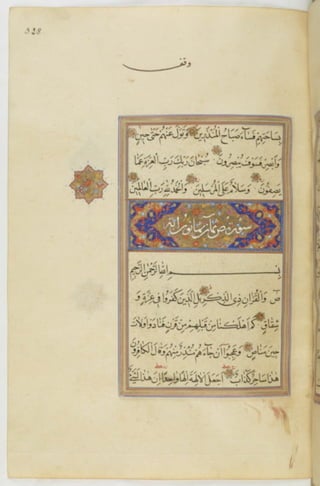 328
وقف
بِسَاحَتِهِمْ فَسَاءَ صَبَاحُ الْمُنْذَرِينَ وَتَوَلَّ عَنْهُمْ حَتَّى حِينٍ
وَأَبْصِرْ فَسَوْفَ يُبْصِرُونَ سُبْحَانَ رَبِّكَ رَبِّ الْعِزَّةِ عَمَّا
يَصِفُونَ وَسَلَامٌ عَلَى الْمُرْسَلِينَ وَالْحَمْدُ لِلَّهِ رَبِّ الْعَالَمِينَ
سورة ص ثمان وثمانون اية
بِسْمِ اللَّهِ الرَّحْمَنِ الرَّحِيمِ
ص وَالْقُرْآنِ ذِي الذِّكْرِ بَلِ الَّذِينَ كَفَرُوا فِي عِزَّةٍ وَ
شِقَاقٍ كَمْ أَهْلَكْنَا مِنْ قَبْلِهِمْ مِنْ قَرْنٍ فَنَادَوْا وَلَاتَ
حِينَ مَنَاصٍ وَعَجِبُوا أَنْ جَاءَهُمْ مُنْذِرٌ مِنْهُمْ وَقَالَ الْكَافِرُونَ
هَذَا سَاحِرٌ كَذَّابٌ أَجَعَلَ الْآلِهَةَ إِلَهًا وَاحِدًا إِنَّ هَذَا لَشَيْءٌ